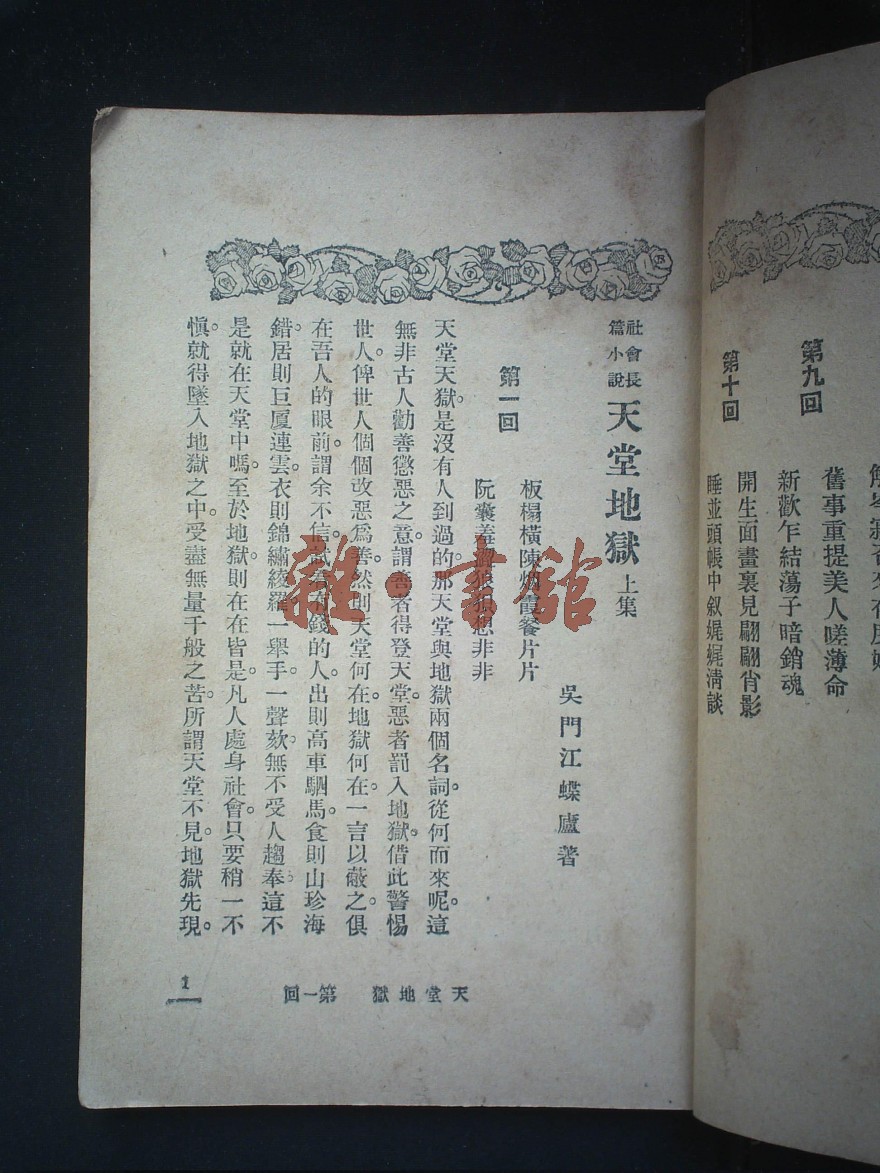 第九回
舊事重提美人嗟薄命
新歡乍結蕩子暗銷魂
第十回
開生面畫裏見翩翩肖影
睡並頭帳中敘娓娓淸談
社會長篇小說 天堂地獄 上集
吳門江蝶廬著
第一回
板榻橫陳 霞餐片片
阮囊羞 想非非
天堂天獄。是沒有人到過的。那天堂與地獄兩個名詞。從何而來呢。這
無非古人勸善懲惡之意。謂善者得登天堂。惡者罰入地獄。借此警惕
世人。俾世人個個改惡爲善。然則天堂何在。地獄何在。一言以蔽之。俱
在吾人的眼前。謂余不信。試 有錢的人。出則高車駟馬。食則山珍海
錯。居則巨厦連雲。衣則錦繡綾羅。一舉手。一聲欬。無不受人趨奉。這不
是就在天堂中嗎。至於地獄。則在在皆是。凡人處身社會。只要稍一不
愼。就得墜入地獄之中。受盡無量千般之苦。所謂天堂不見。地獄先現。
天堂地獄 第一回
1
雜·書館